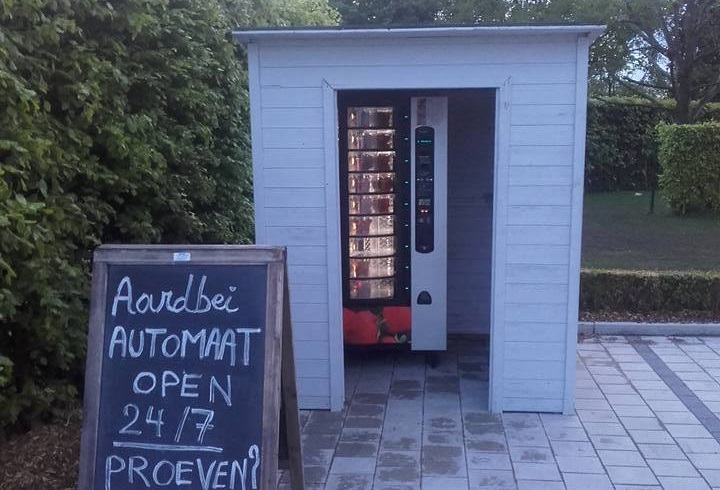 Aardbei
AUTOMAAT
OPEN
24/7
PROEVEN?